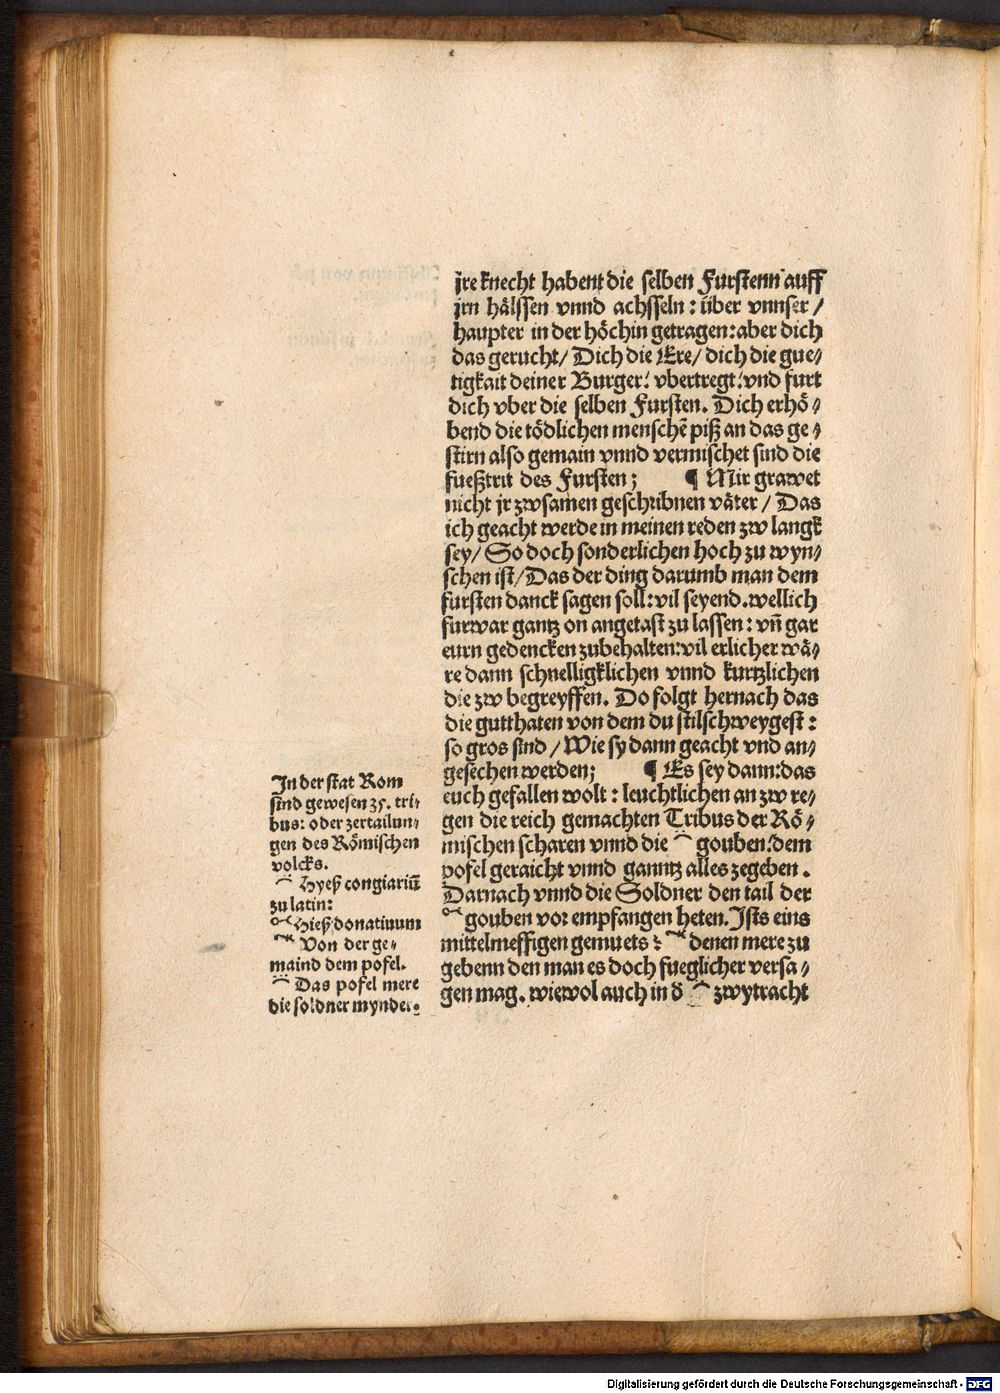 jre knecht habent die selben Furstenn auff
jrn hälssen vnnd achsseln : über vnnser /
haupter in der höchin getragen : aber dich
das gerucht / Dich die Ere / dich die gue⸗
tigkait deiner Burger : vbertregt : vnd furt
dich vber die selben Fursten. Dich erhö⸗
bend die tödlichen menschē piß an das ge⸗
stirn also gemain vnnd vermischet sind die
fueßtrit des Fursten ; ¶ Mir grawet
nicht jr zwsamen geschribnen väter / Das
ich geacht werde in meinen reden zw langk
sey / So doch sonderlichen hoch zu wyn⸗
schen ist / Das der ding darumb man dem
fursten danck sagen soll : vil seyend. wellich
furwar gantz on angetast zu lassen : vn̄ gar
eurn gedencken zubehalten : vil erlicher wä⸗
re dann schnelligklichen vnnd kurtzlichen
die zw begreyffen. Do folgt hernach das
die gutthaten von dem du stilschweygest :
so gros sind / Wie sy dann geacht vnd an⸗
gesechen werden ; ¶ Es sey dann : das
euch gefallen wolt : leuchtlichen an zw re⸗
gen die reich gemachten Tribus der Rö⸗
mischen scharen vnnd die ⁀ gouben : dem
pofel geraicht vnnd ganntz alles zegeben .
Darnach vnnd die Soldner den tail der
gouben vor empfangen heten. Ists eins
mittelmessigen gemuets : denen mere zu
gebenn den man es doch fueglicher versa⸗
gen mag. wiewol auch in d ⁀ zwytracht
In der stat Rom
sind gewesen 35. tri⸗
bus : oder zertailun⸗
gen des Römischen
volcks.
⁀ Hyeß congiariū
zu latin :
Hieß donatiuum
Von der ge⸗
maind dem pofel.
⁀ Das pofel mere
die soldner mynder.
Digitalisierung gefördert durch die Deutsche Forschungsgemeinschaft - DFG